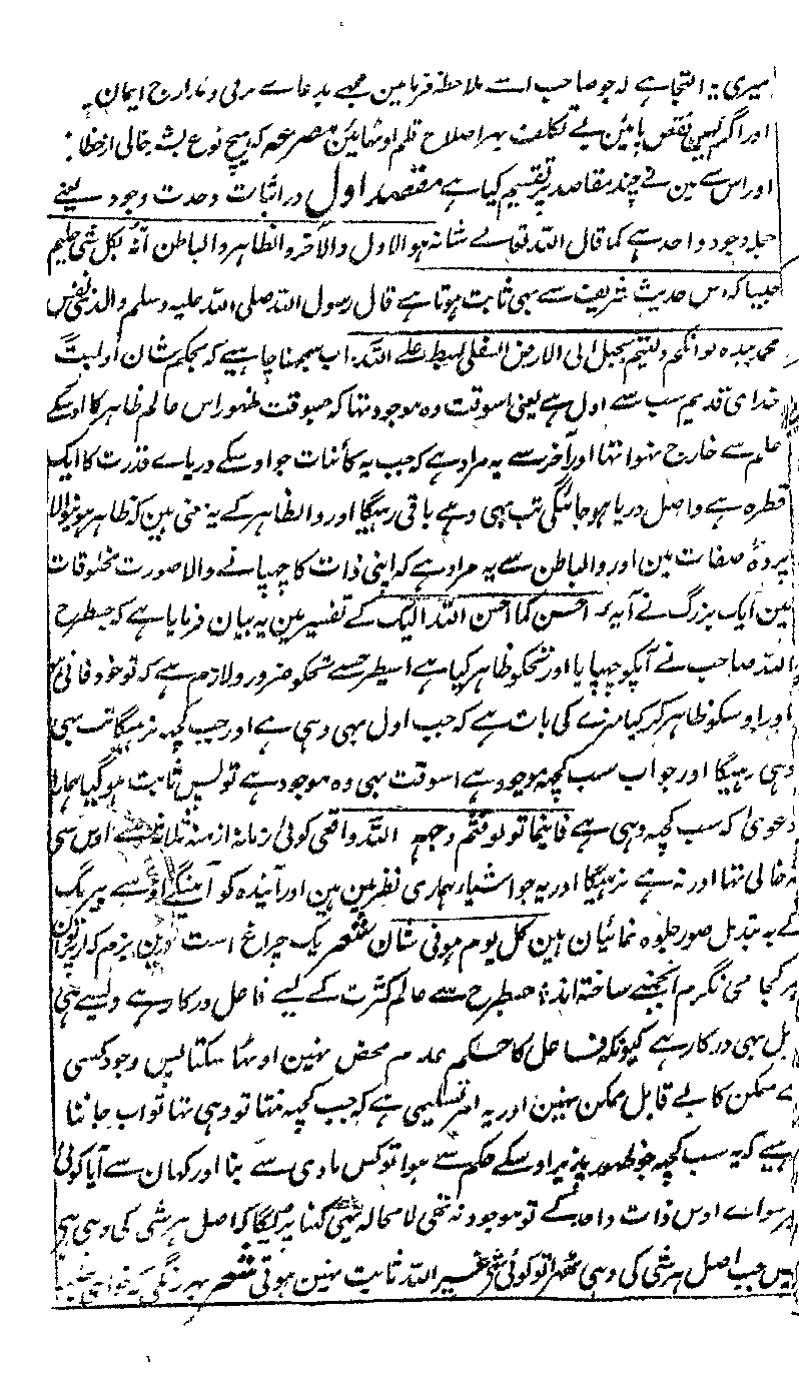 میری یہ التجا ہے کہ جو صاحب اسے ملاحظہ فرمائین مجھے بدعاے ترقی مدارج ایمان
اور اگر کہین نقص پائین بے تکلف بہر اصلاح قلم اوٹھائین مصرعہ کہ ہیچ نوع بشر خالی از خطا
اور اس سے مین نے چند مقاصد پر تقسیم کیا ہے مقصد اول در اثبات وحدت وجود یعنے
جملہ وجود واحد ہے کما قال اللہ تعالے شانہ ہو الاول والآخر والظاہر والباطن انہ بکل شی علیم
جیسا کہ اس حدیث شریف سے بہی ثابت ہوتا ہے قال رسول اللہ صلی اللہ علیہ وسلم والذی نفس
محمد بیدہ لو انکم دلیتم بحبل الی الارض السفلی لہبط علے اللہ اب سمجھنا چاہیے کہ بحکم شان اولیت
خدای قدیم سب سے اول ہے یعنی اسوقت وہ موجود تہا کہ جسوقت ظہور اس عالم ظاہر کا اوسکے
علم سے خارج نہوا تہا اور آخر سے یہ مراد ہے کہ جب یہ کائنات جو اوسکے دریاے قدرت کا ایک
قطرہ ہے واصل دریا ہو جائیگی تب بہی وہے باقی رہیگا اور والظاہر کے یہ معنی ہین کہ ظاہر ہونیوالا
پردۂ صفات مین اور والباطن سے یہ مراد ہے کہ اپنی ذات کا چہپانے والا صورت مخلوقات
مین ایک بزرگ نے آیہ احسن کما احسن اللہ الیک کے تفسیر مین یہ بیان فرمایا ہے کہ جسطرح
اللہ صاحب نے آپکو چہپایا اور تجکو ظاہر کیا ہے اسیطرح سے تجکو ضرور ولازم ہے کہ تو خود فانی
اور اوسکو ظاہر کر کیا مزے کی بات ہے کہ جب اول بہی وہی ہے اور جب کچہ نرہیگا تب بہی
وہی رہیگا اور جو اب سب کچہ موجود ہے اسوقت بہی وہ موجود ہے تو بس ثابت ہو گیا ہمارا
دعویٰ کہ سب کچہ وہی ہے فاینما تولو فثم وجہ اللہ واقعی کوئی زمانہ ازمنہ ثلاثہ سے اوس سی
نہ خالی تہا اور نہ ہے نرہیگا اور یہ جو اشیاء ہماری نظر مین ہین اور آیندہ کو آینگے اوسے بیرنگ
کے بہ تبدیل صور جلوہ نمائیان ہین کل یوم ہو فی شان شعر یک چراغ است درین بزم کہ از پرتو آن
ہر کجا می نگرم انجمنے ساختہ اند جسطرح سے عالم کثرت کے لیے فاعل درکار ہے ویسے ہی
بل بہی درکار ہے کیونکہ فاعل کا حکم عدم محض نہین اوٹھا سکتا پس وجود کسی
ے ممکن کا بے قابل ممکن نہین اور یہ امر تسلیمی ہے کہ جب کچہ نتہا تو وہی تہا تو اب جاننا
ہیے کہ یہ سب کچہ جو ظہور پذیر اوسکے حکم سے ہوا تو کس مادی سے بنا اور کہان سے آیا کوئی
سواے اوس ذات واحد کے تو موجود نہ تہی لا محالہ یہی کہنا پڑیگا کہ اصل ہر شی کی وہی ہے
پس جب اصل ہر شی کی وہی ٹھہرا تو کوئی شی غیر اللہ ثابت نہین ہوتی شعر بہر رنگی کہ خواہی